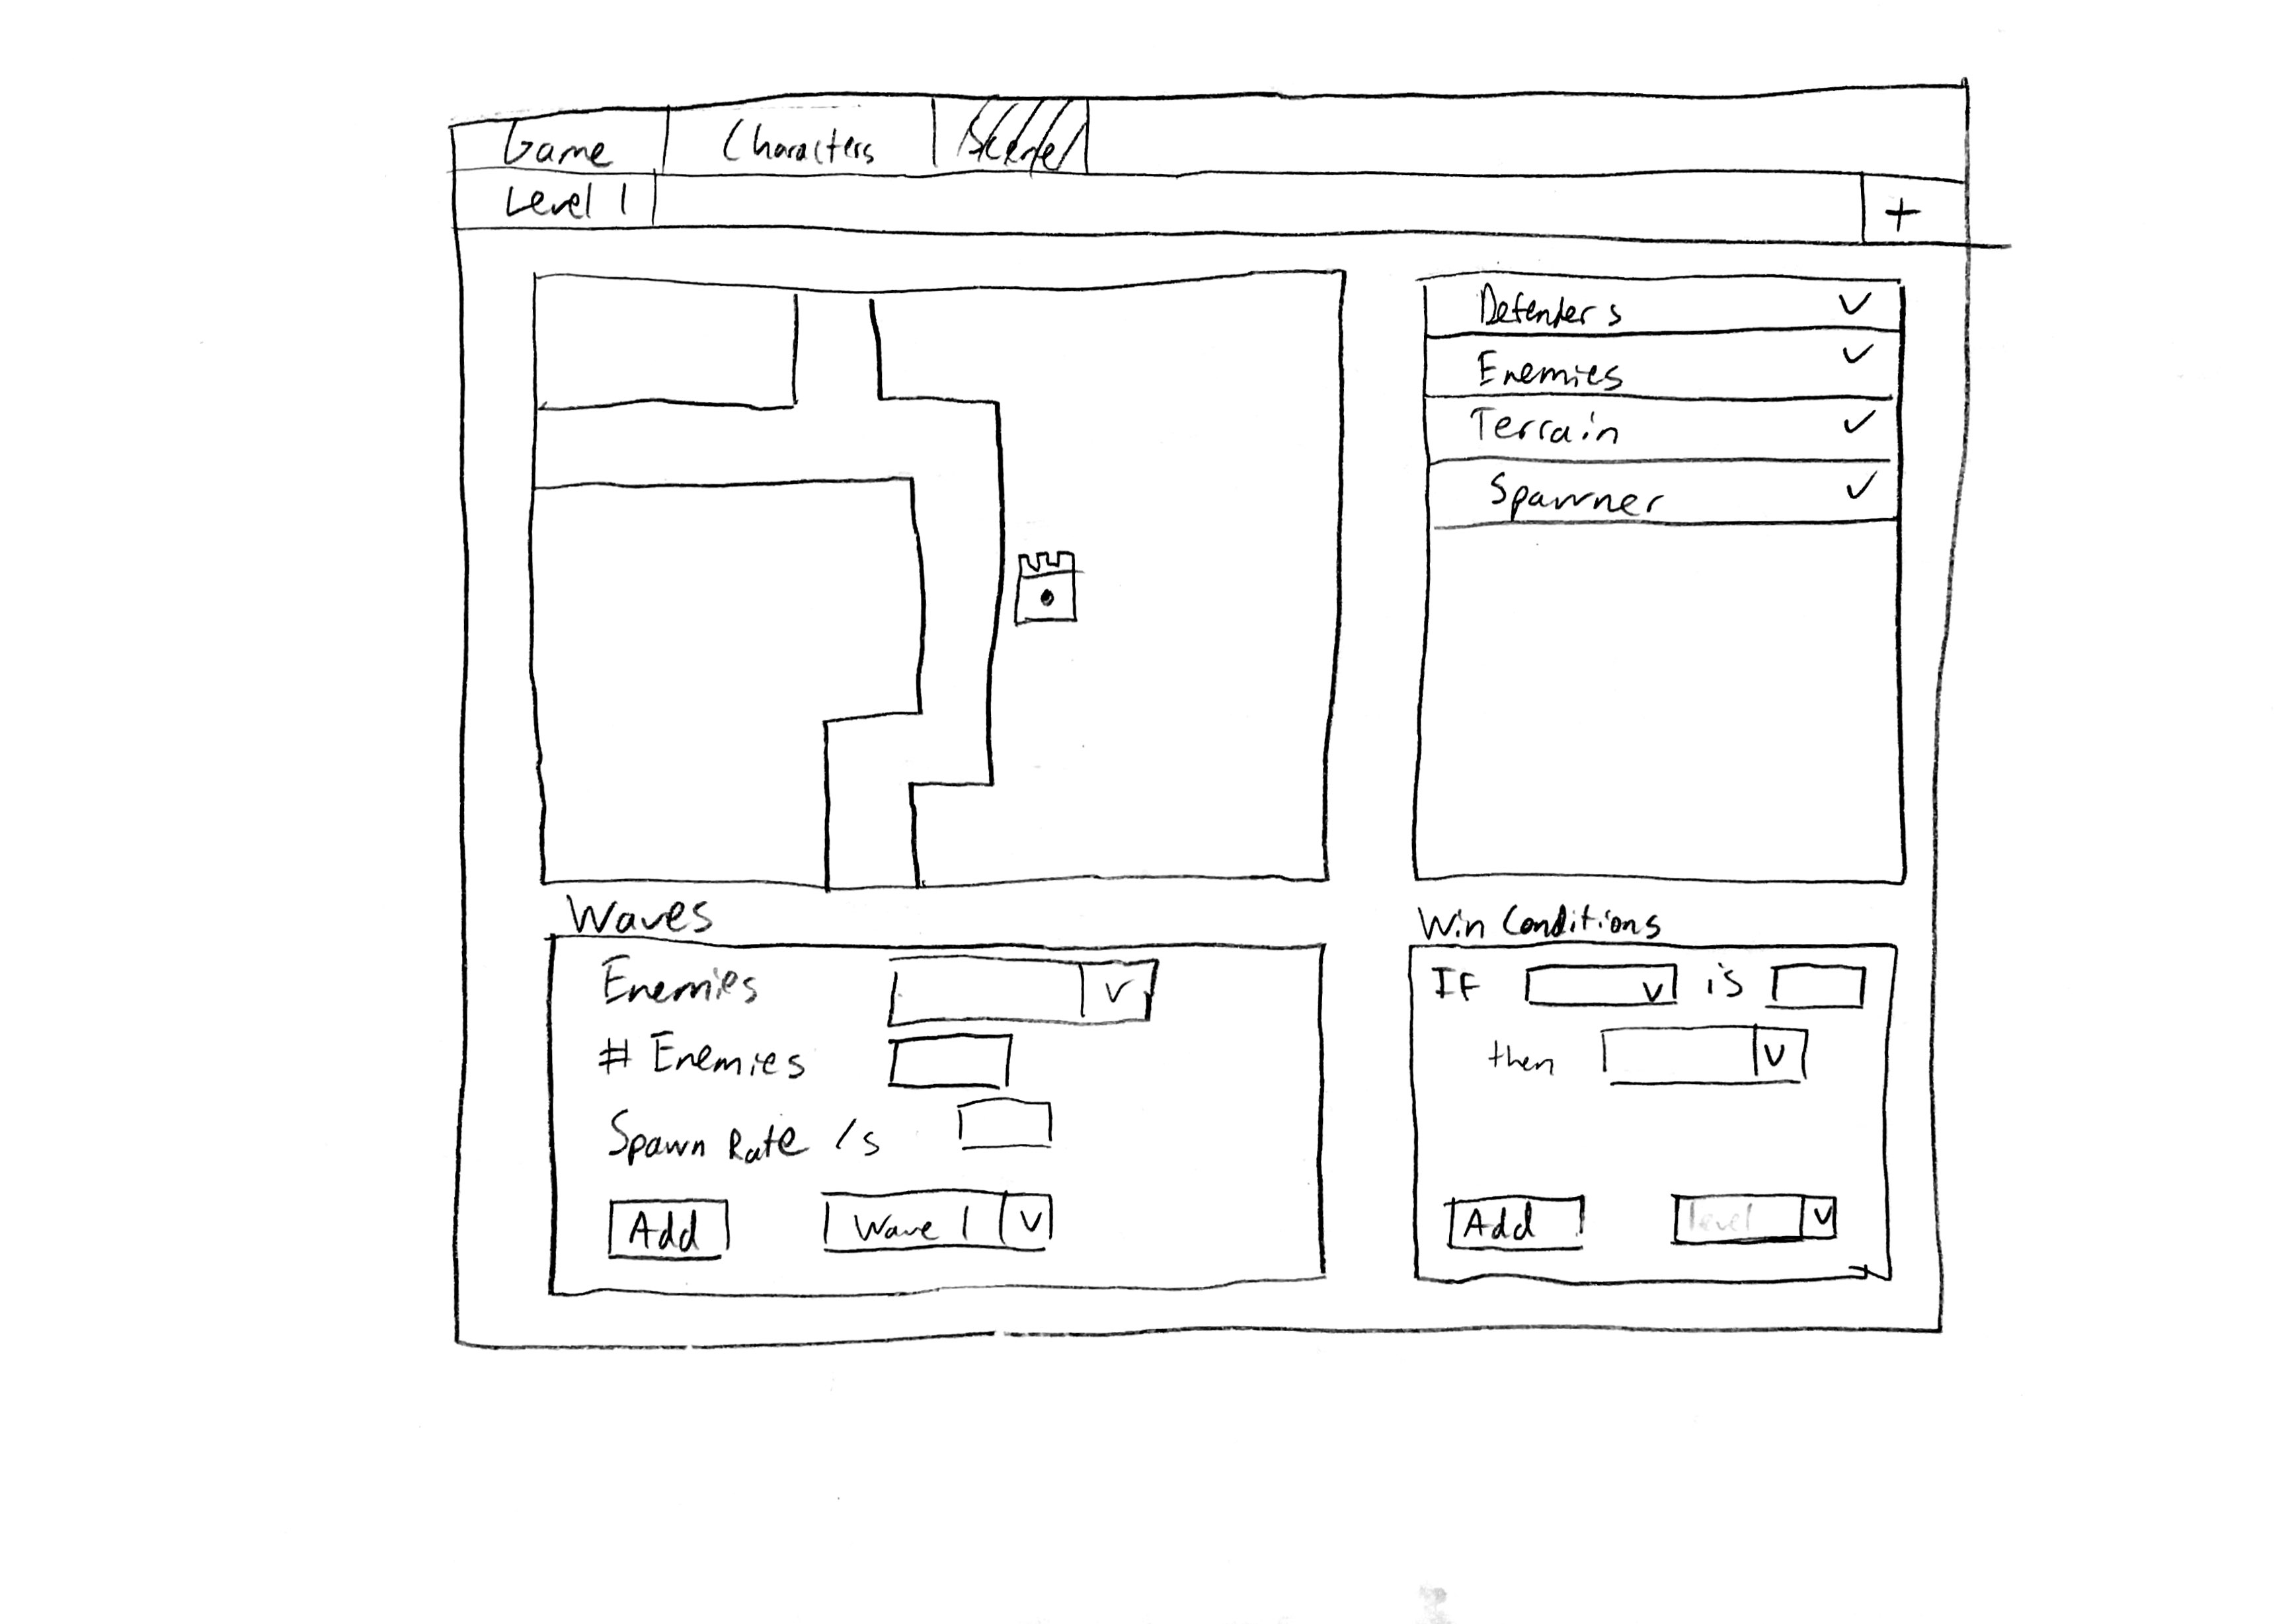 Game Characters
Level 1 +
Defenders
Enemies
Terrain
Spawner
Waves
Enemies
# Enemies
Spawn Rate /s
Add Wave 1
Win Conditions
If is
then
Add level